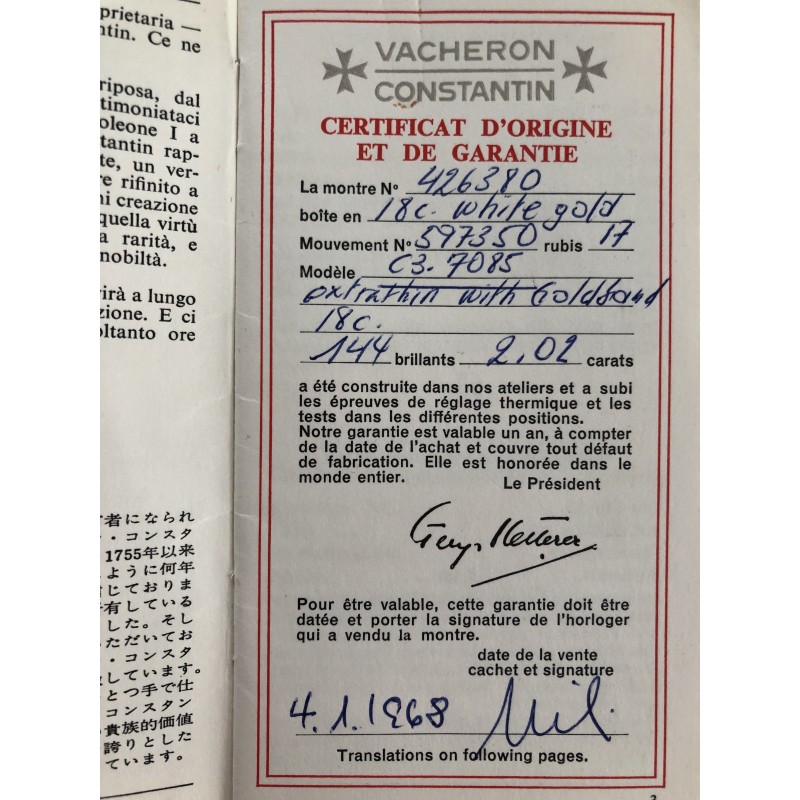 prietaria —
ntin. Ce ne
riposa, dal
timoniataci
oleone I a
tantin rap-
te, un ver-
e rifinito a
ni creazione
quella virtù
a rarità, e
nobiltà.
rirà a lungo
zione. E ci
oltanto ore
者になられ
・コンスタ
1755年以来
ように何年
じておりま
有している
した。そし
ただいてお
・コンスタ
しています。
とつ手で仕
コンスタン
貴族的価値
誇りとした
ています。
VACHERON
CONSTANTIN
CERTIFICAT D'ORIGINE
ET DE GARANTIE
La montre No 426380
boîte en 18c. white gold
Mouvement No 597350 rubis 17
Modèle C3.7085
extrathin with Goldband
18c.
144 brillants 2,02 carats
a été construite dans nos ateliers et a subi
les épreuves de réglage thermique et les
tests dans les différentes positions.
Notre garantie est valable un an, à compter
de la date de l'achat et couvre tout défaut
de fabrication. Elle est honorée dans le
monde entier.
Le Président
Pour être valable, cette garantie doit être
datée et porter la signature de l'horloger
qui a vendu la montre.
date de la vente
cachet et signature
4.1.1968
Translations on following pages.